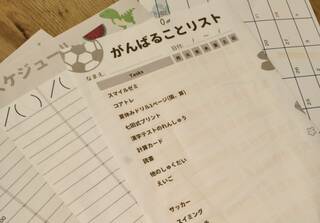 スケジュール
がんばることリスト
なまえ
日付: / ~ /
Tasks
スマイルゼミ
コアトレ
夏休みドリル1ページ(国、算)
七田式プリント
漢字テストのれんしゅう
計算カード
読書
他のしゅくだい
えいご
サッカー
スイミング